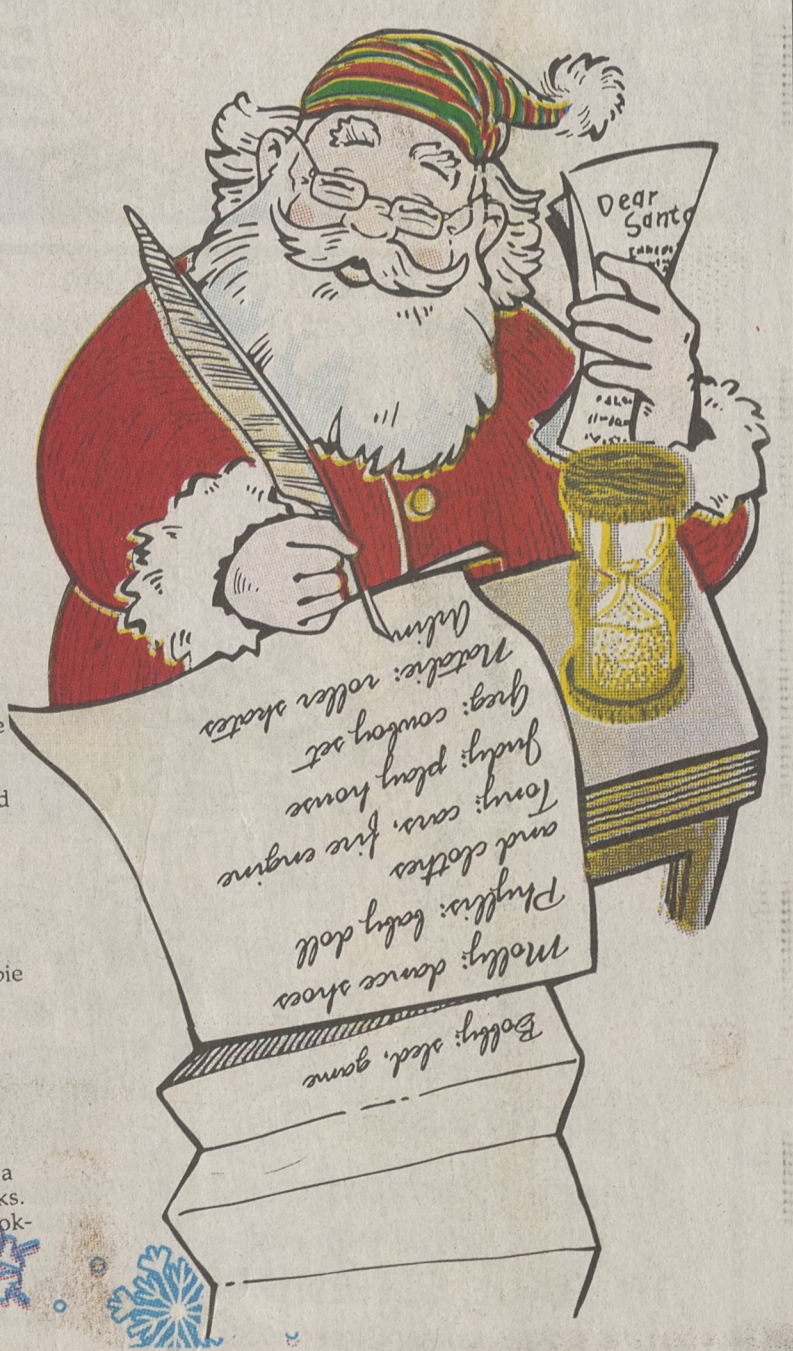 Dear
Santa
Bobby: sled, game
Molly: dance shoes
Phyllis: baby doll
and clothes
Tony: cars, fire engine
Judy: play house
Greg: cowboy set
Natalie: roller skates
Arlin
e
d
a
ks.
ok-